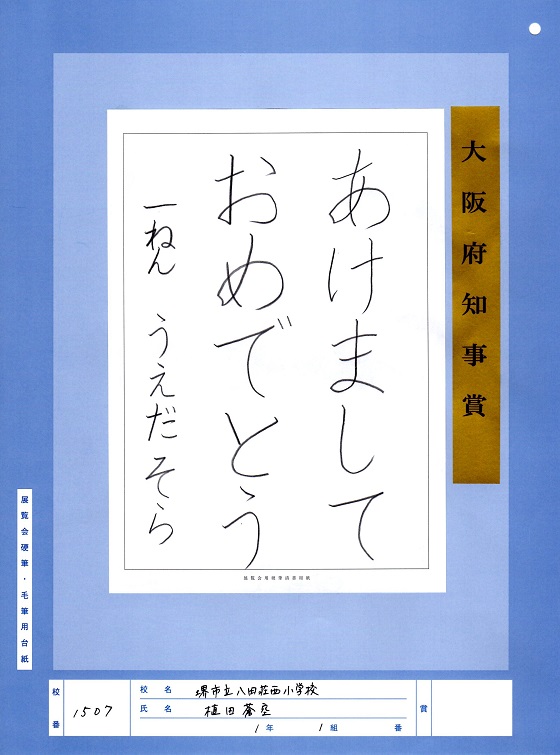 大阪府知事賞
あけまして
おめでとう
一ねん うえだそら
展覧会用硬筆清書用紙
展覧会硬筆・毛筆用台紙
校番 1507
校名 堺市立八田荘西小学校
氏名 植田蒼空
1年 1組 番
賞